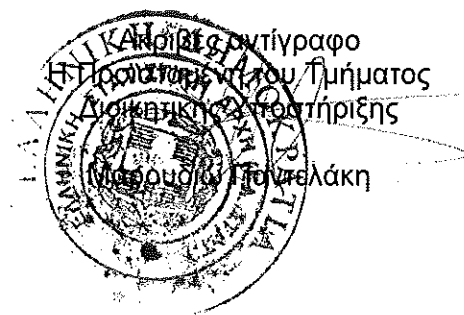 Ακριβές αντίγραφο
Η Προϊσταμένη του Τμήματος
Διοικητικής Υποστήριξης
Μαρουδιώ Παντελάκη
ΕΛΛΗΝΙΚΗ ΔΗΜΟΚΡΑΤΙΑ
ΕΛΛΗΝΙΚΗ ΣΤΑΤΙΣΤΙΚΗ ΑΡΧΗ (ΕΛ.ΣΤΑΤ.)